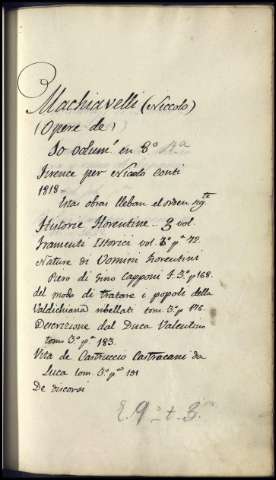 Machiavelli (Niccolo)
(Opere de)
10 volum.^s en 8º
Firence per Nicolo Conti
1818
Esta obra lleban el orden sig.^te
Historie Florentine. 3 vol.
Framenti Istorici vol. 3º p.ª 72.
Nature di Uomini Fiorentini
Piero di Gino Capponi t. 3.º p.ª 168.
del modo di tratare i popoli della
Valdichiana ribellati tom. 3.º p.ª 176.
Descrizione dal Duca Valentino
tomo 3.º p.ª 183.
Vita de Castruccio Castracani da
Luca tom. 3.º p.ª 191
De discorsi
E. 9ª t. 3.